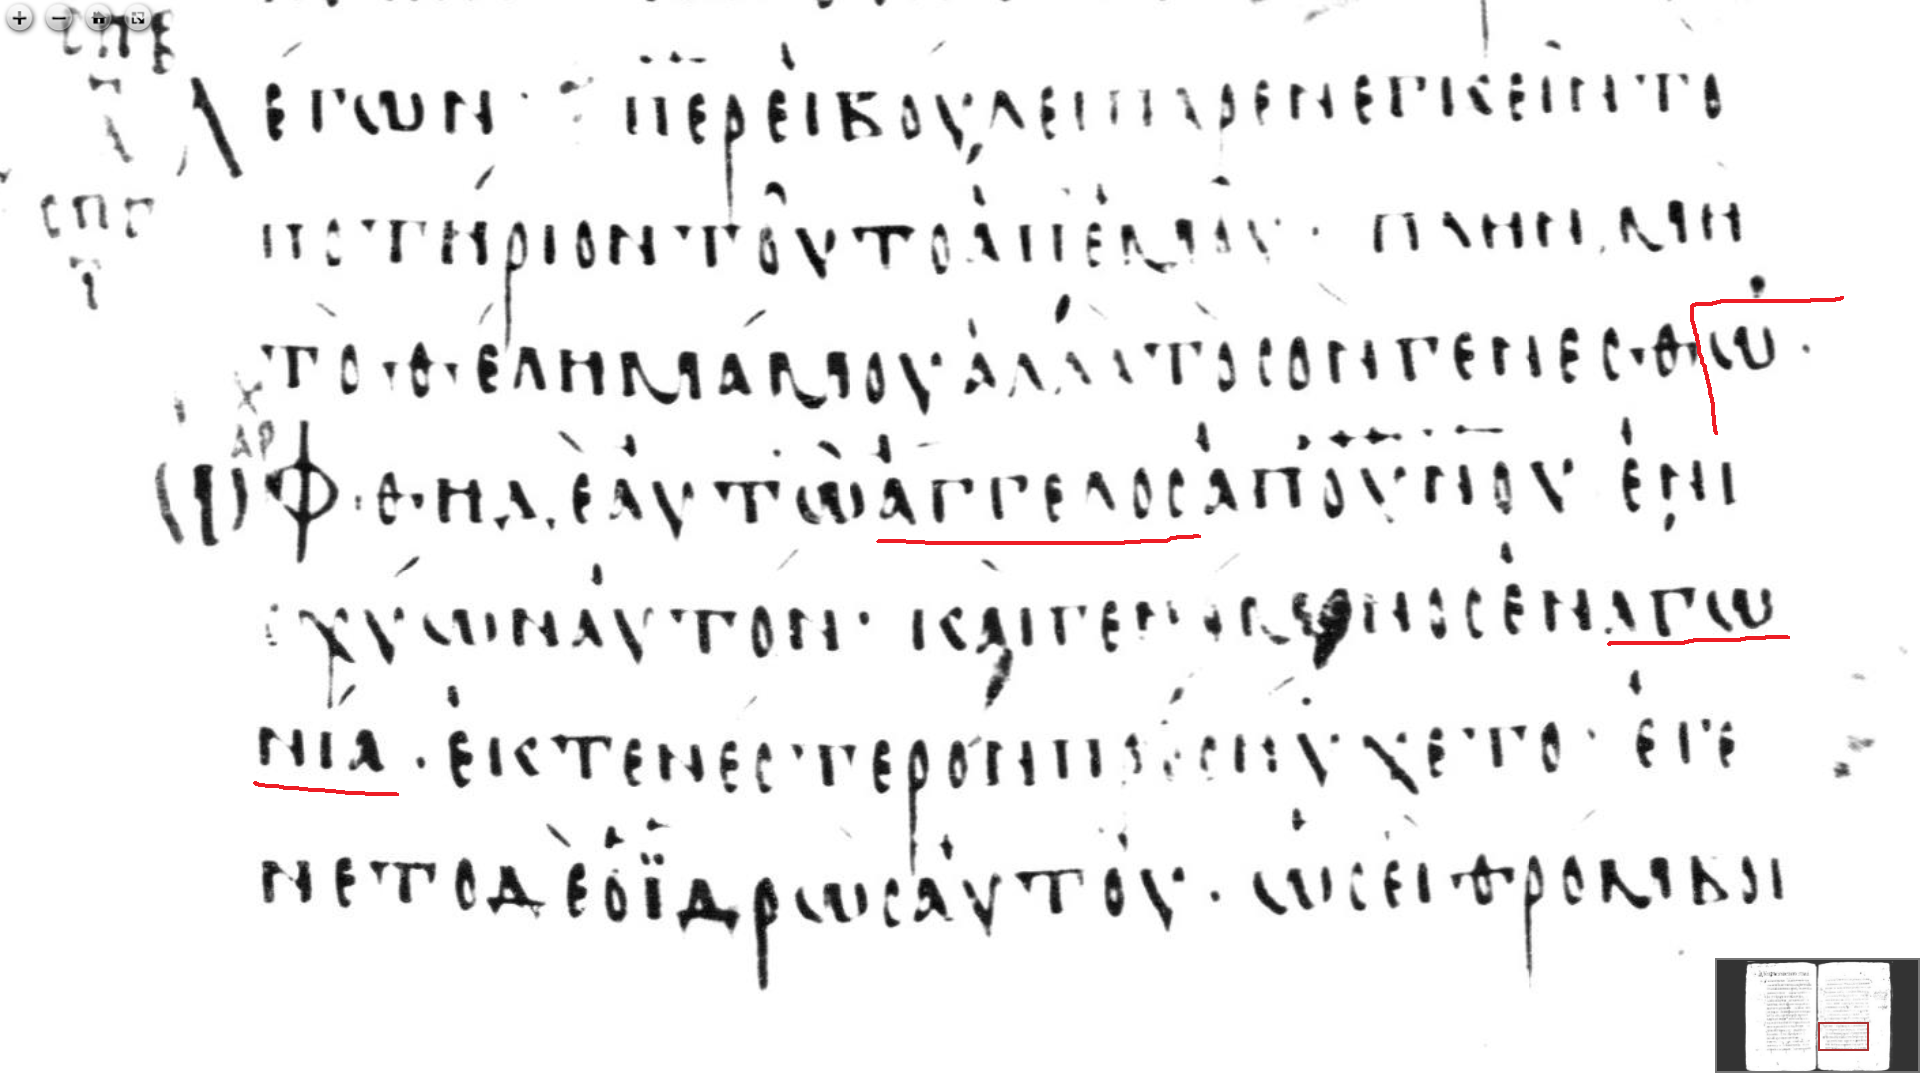 ϹΠΕ
ΛΕΓΩΝ · ΠΕΡ ΕΙ ΒΟΥΛΕΙ ΠΑΡΕΝΕΓΚΕΙΝ ΤΟ
ϹΠΓ
ΠΟΤΗΡΙΟΝ ΤΟΥΤΟ ΑΠ ΕΜΟΥ · ΠΛΗΝ ΜΗ
ΤΟ ΘΕΛΗΜΑ ΜΟΥ ΑΛΛΑ ΤΟ ϹΟΝ ΓΕΝΕϹΘΩ ·
ΑΡΧ
ΩΦΘΗ ΔΕ ΑΥΤΩ ΑΓΓΕΛΟϹ ΑΠ ΟΥΝΟΥ ΕΝΙ
ϹΧΥΩΝ ΑΥΤΟΝ · ΚΑΙ ΓΕΝΟΜΕΝΟϹ ΕΝ ΑΓΩ
ΝΙΑ · ΕΚΤΕΝΕϹΤΕΡΟΝ ΠΡΟϹΗΥΧΕΤΟ · ΕΓΕ
ΝΕΤΟ ΔΕ Ο ΪΔΡΩϹ ΑΥΤΟΥ · ΩϹΕΙ ΘΡΟΜΒΟΙ